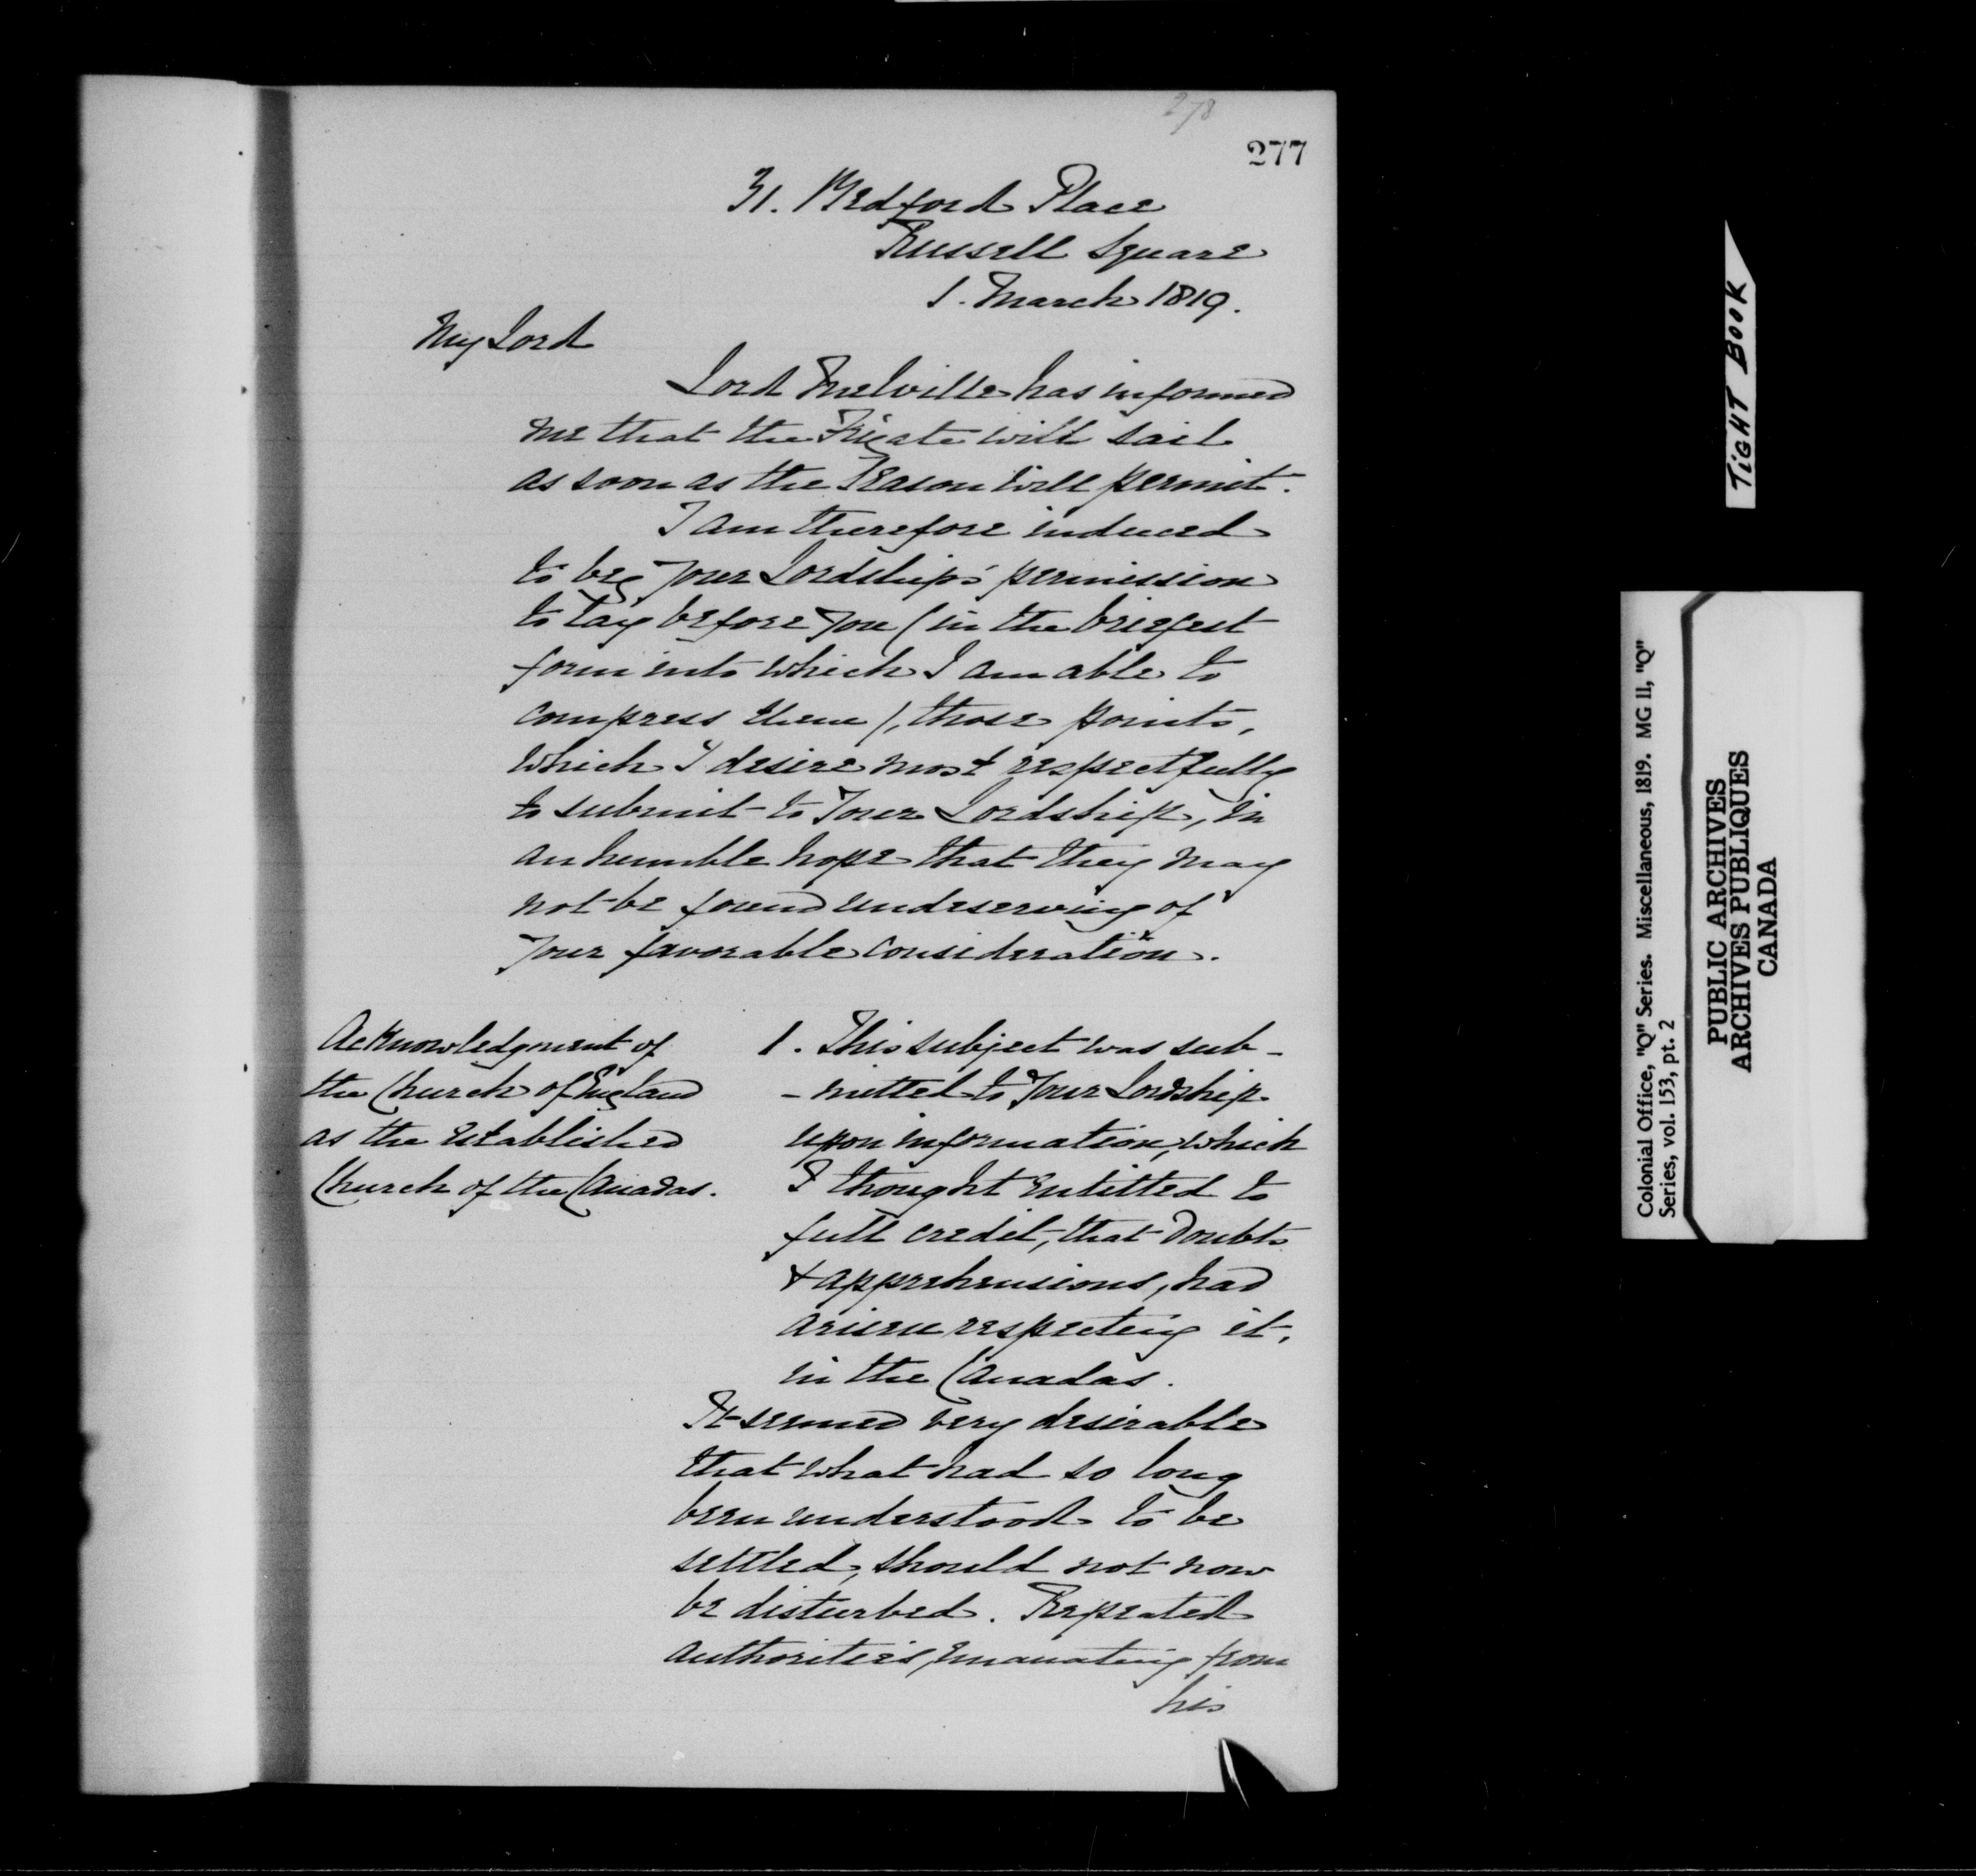 278
277
31. Bedford Place
Russell Square
1. March 1819.
My Lord
Lord Melville has informed
me that the Frigate will sail
as soon as the Season will permit.
I am therefore induced
to beg Your Lordship's permission
to lay before You (in the briefest
form into which I am able to
compress them), those points,
which I desire most respectfully
to submit to Your Lordship, in
an humble hope that they may
not be found undeserving of
Your favorable consideration.
Acknowledgment of
the Church of England
as the Established
Church of the Canadas.
1. This subject was sub-
-mitted to Your Lordship
upon information, which
I thought entitled to
full credit, that Doubts
& apprehensions, had
arisen respecting it,
in the Canadas.
It seemed very desirable
that what had so long
been understood to be
settled, should not now
be disturbed. Repeated
authorities, emanating from
his
TIGHT BOOK
Colonial Office, "Q" Series. Miscellaneous, 1819. MG 11, "Q"
Series, vol. 153, pt. 2
PUBLIC ARCHIVES
ARCHIVES PUBLIQUES
CANADA